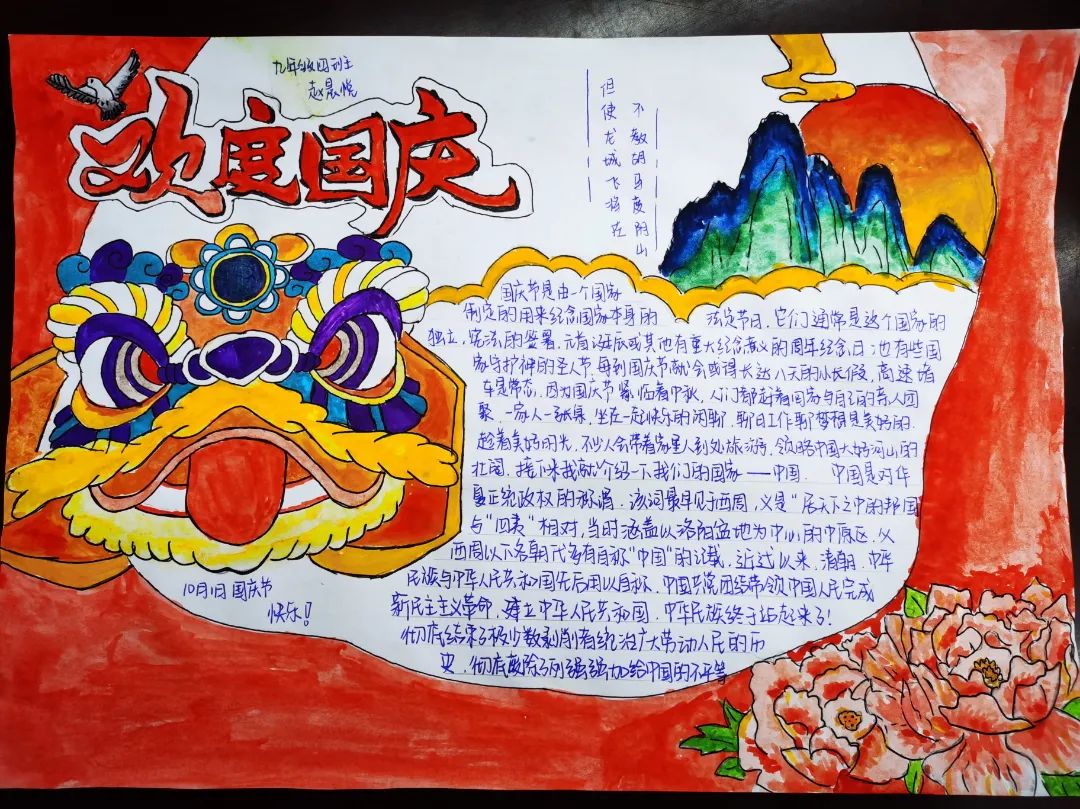 九年级四班
赵晨悦
欢度国庆
但使龙城飞将在
不教胡马度阴山
国庆节是由一个国家
制定的用来纪念国家本身的 法定节日，它们通常是这个国家的
独立、宪法的签署、元首诞辰或其他有重大纪念意义的周年纪念日；也有些国
家守护神的圣人节。每到国庆节就会或得长达八天的小长假，高速堵
车是常态，因为国庆节紧临着中秋，人们都赶着回家与自己的家人团
聚，一家人一张桌，坐在一起快乐的闲聊，聊日工作聊梦想是美好的．
趁着美好时光，不少人会带着家里人到处旅游，领略中国大好河山的
壮阔，接下来我就介绍一下我们的国家——中国． 中国是对华
夏正宪政权的称谓．该词最早见于西周，义是“居天下之中的邦国
与“四夷”相对，当时涵盖以洛阳盆地为中心的中原区，
西周以下各朝代多有自称“中国”的记载，近代以来，清朝，中华
民族与中华人民共和国先后用以自称．中国共党团结带领中国人民完成
新民主主义革命，建立中华人民共和国，中华民族终于站起来了！
彻底结束了极少数剥削者统治广大劳动人民的历
史，彻底废除了列强强加给中国的不平等
10月1日国庆节
快乐！